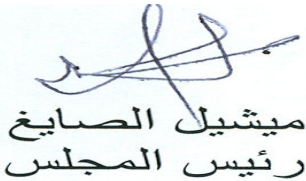 ميشيل الصايغ
رئيس المجلس